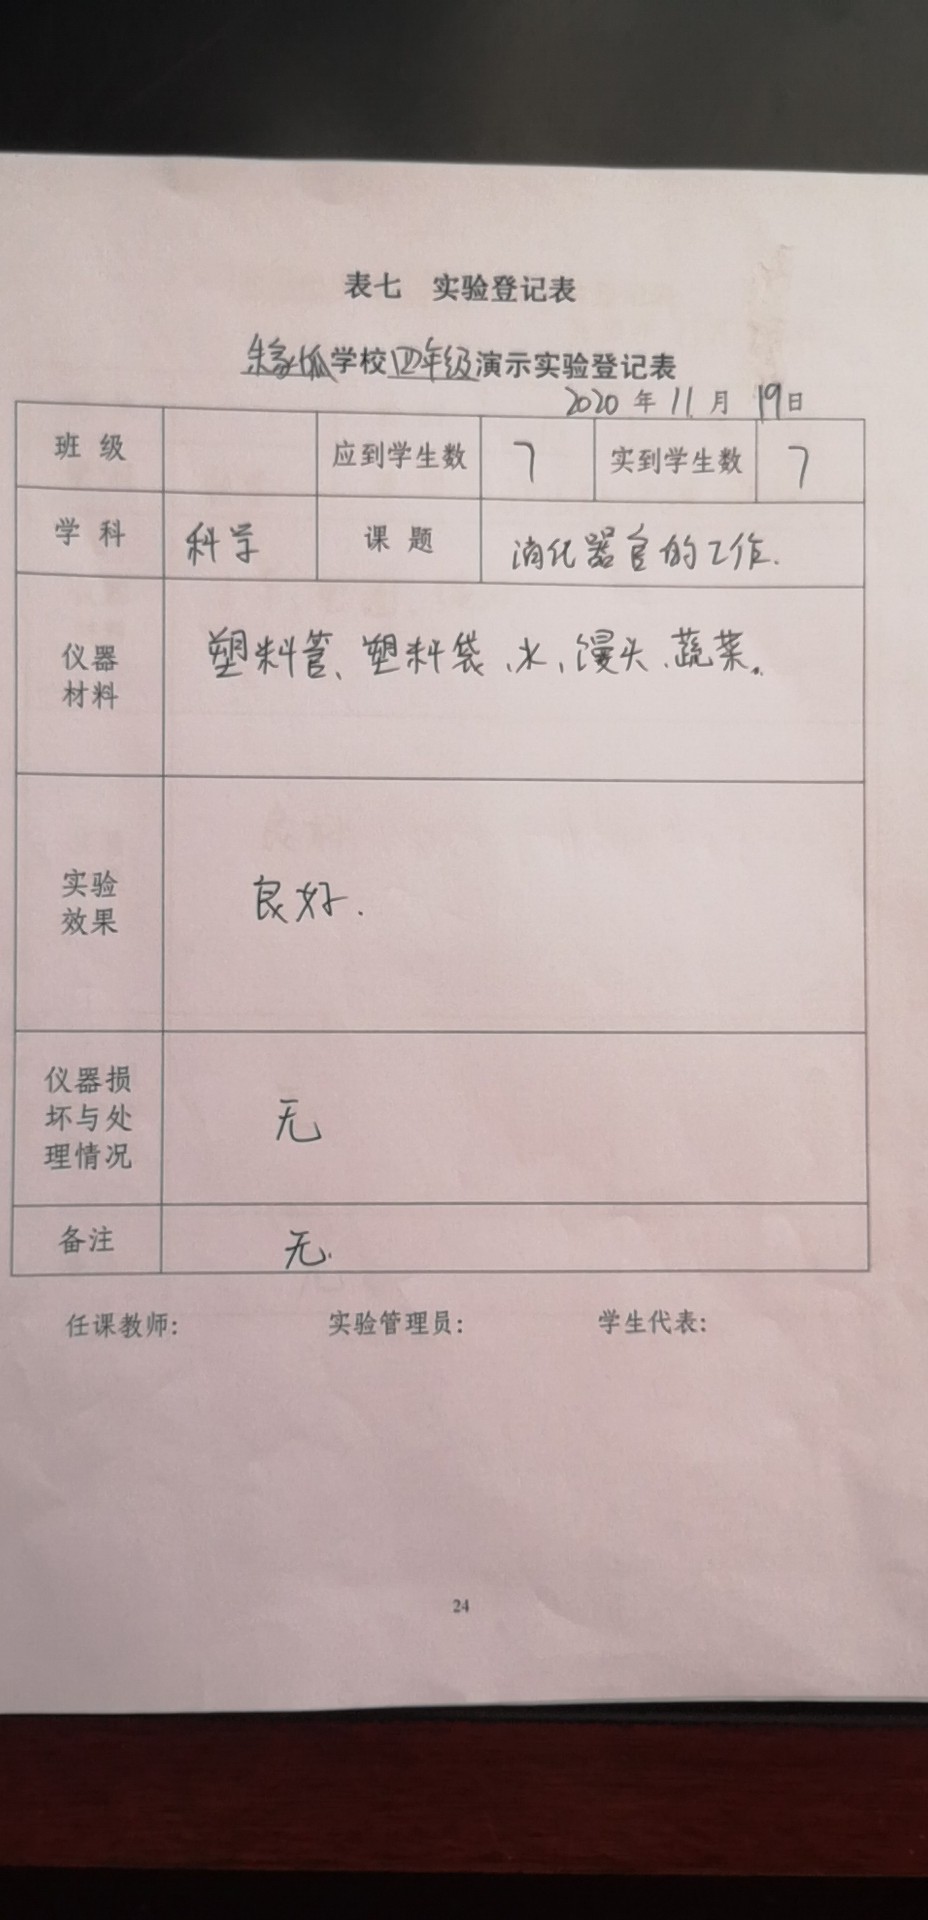 表七 实验登记表
朱家孤学校四年级演示实验登记表
2020年11月19日
班级 应到学生数 7 实到学生数 7
学科 科学 课题 消化器官的工作.
仪器
材料
塑料管、塑料袋、水、馒头、蔬菜。
实验
效果
良好.
仪器损
坏与处
理情况
无
备注 无.
任课教师: 实验管理员: 学生代表:
24